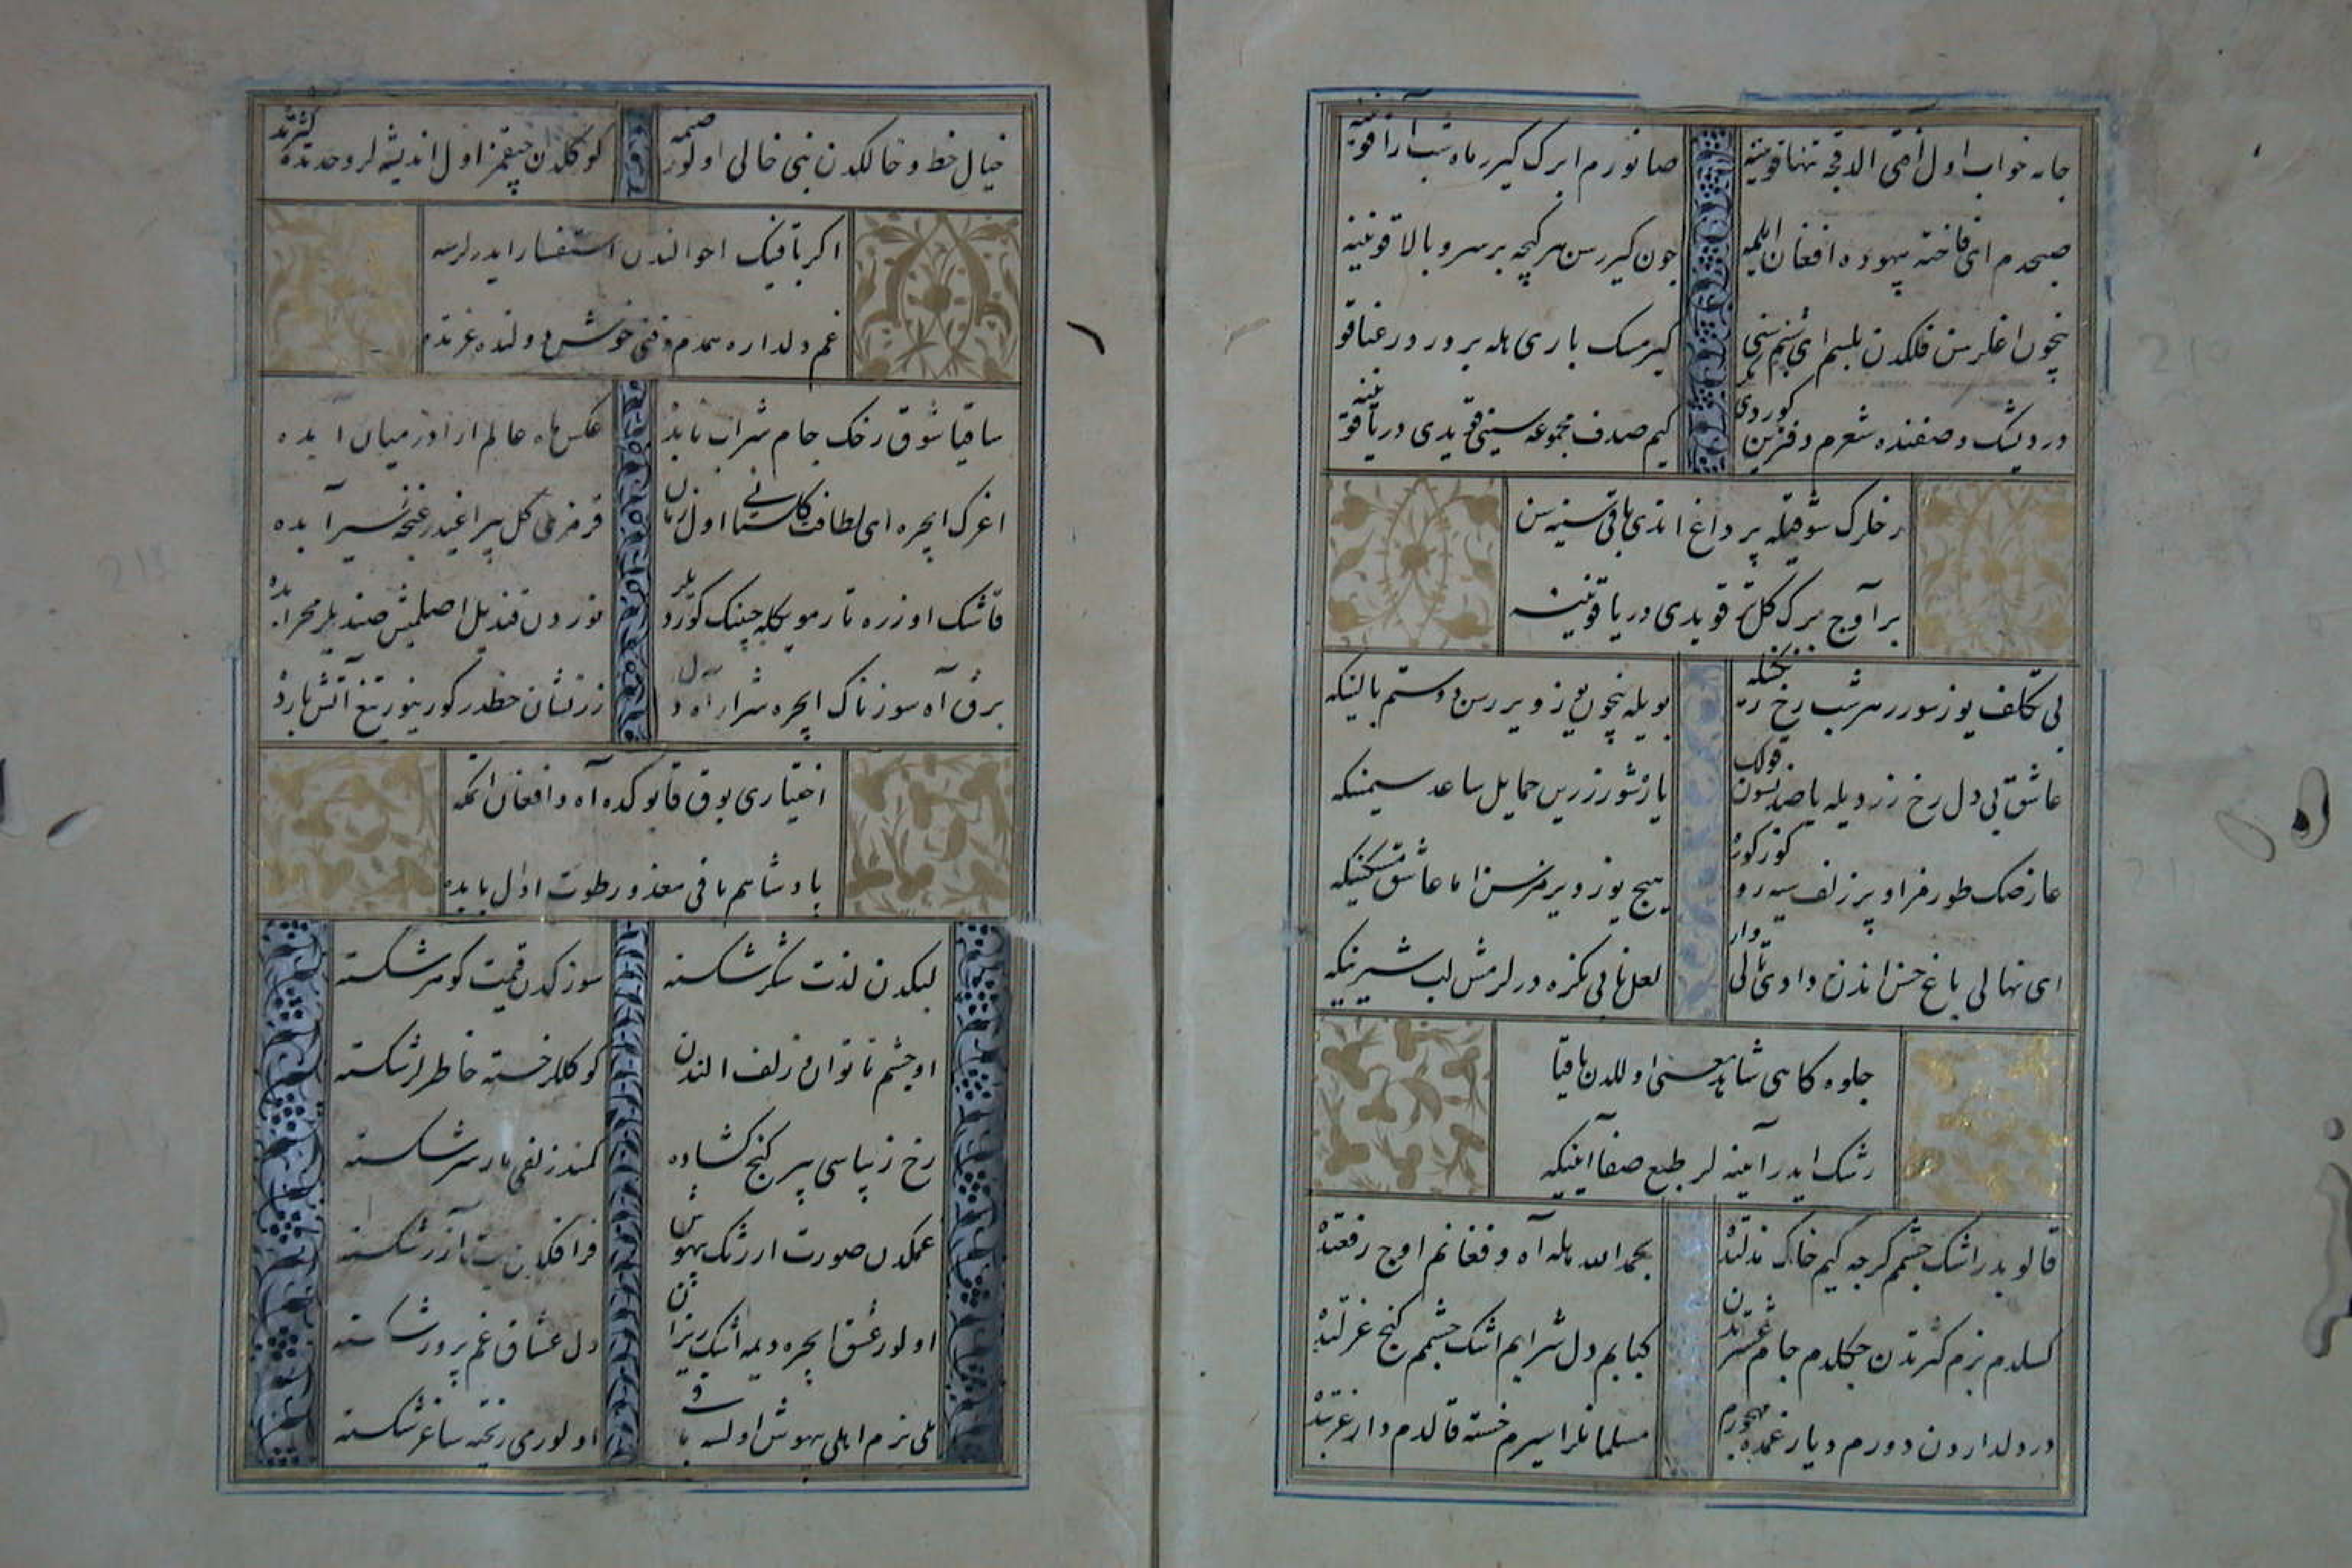 جامه خواب اول آفتی الدقجه تنها قوینینه
صانورم ابرک کیرر ماه شب آرا قوینینه
صبحدم ای فاخته بیهوده افغان ایلمه
چون کیررسن هر کیجه بر سرو بالا قوینینه
نیچون اغلرسن فلکدن بلسم ای شبنم سنی
کیرمسک باری هله بر ورد رعنا قوینینه
در دیشک وصفنده شعرم دفترین کوردی
کیم صدف مجموعه سینی قویدی دریا قوینینه
رخلرک شوقیله پر داغ اتدی باقی سینه سن
بر آوج برک کل تر قویدی دریا قوینینه
بی تکلف یوز سورر هر شب رخ رنکینکه
بویله نیچون یوز ویررسن دوستم بالینکه
عاشق بی دل رخ زردیله یاصدنسون قولک
یارشور زرین حمایل ساعد سیمینکه
عارضک طورمز اوپر زلف سیه رو کوز کوره
هیچ یوز ویرمزسن اما عاشق مسکینکه
ای نهالی باغ حسن اندن دادی وار
لعل نابی بکزه درلرمش لب شیرینکه
جلوه کاهی شاهد معنی اوللدن باقیا
رشک ایدر آیینه لر طبع صفا آیینکه
قالوبدر اشک چشمم کرچه کیم خاک مذلتده
بحمدالله هله آه و فغانم اوج رفعتده
کسلدم بزم کثرتدن چکلدم جام عشرتدن
کبابم دل شرابم اشک چشمم کنج عزلتده
در دلداردن دورم دیار غمده مهجورم
مسلمانلر اسیرم خسته قالدم دار غربتده
خیال خط و خالکدن بنی خالی اولور صنمه
کوکلدن چیقمز اول اندیشه لر وحدتده کثرتده
اکر باقینک احوالندن استفسار ایدرلرسه
غم دلداره همدم وقتی خوش دولتده عزتده
ساقیا شوق رخک جام شراب نابده
عکس ماه عالم آرادر میان آبده
اغزک ایچره ای لطافت کلستانی اول زبان
قرمزی کل پیراغیدر غنچه سیرابده
قاشک اوزره تار مویکله چینک کوردیلر
نوردن قندیل اصلمش صندیلر محرابده
برق آه سوزناک ایچره شرار آه دل
زرنشان خطدر کورینور تیغ آتش تابده
اختیاری یوق قاپوکده آه و افغان اتمکه
پادشاهم باقی معذور طوت اول بابده
لبکدن لذت شکر شکسته
سوزکدن قیمت کوهر شکسته
او چشم ناتوان و زلف الندن
کوکللر خسته خاطرلر شکسته
رخ زیباسی بر کنج کشاده
کمند زلفی مار سر شکسته
غمکدن صورت ارژنک بیهوش
فراقکدن بت آزر شکسته
اولور عشق ایچره دیمه اشک ریزان
دل عشاق غم پرور شکسته
ملی بزم اهلی بیهوش اولسه باقی
اولور می ریخته ساغر شکسته